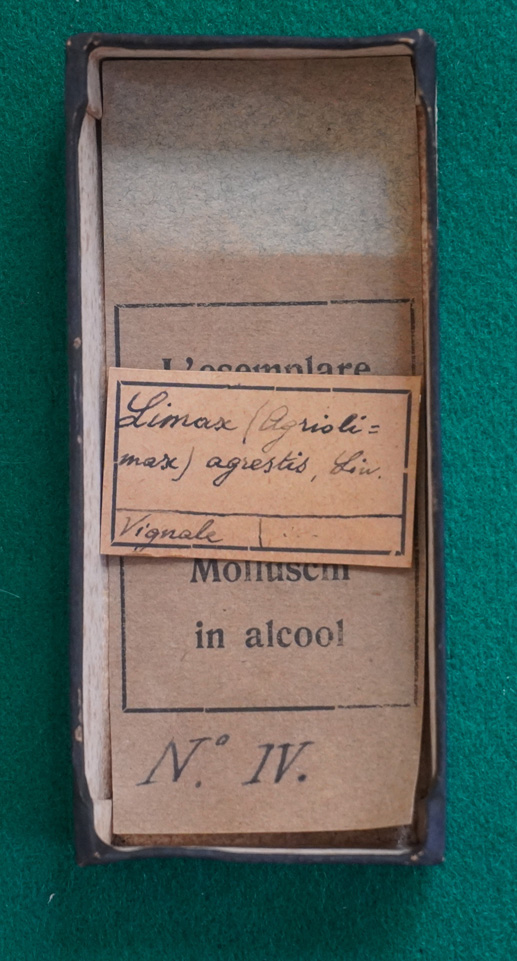 L'esemplare
Limax (Agrioli=
max) agrestis, Lin.
Vignale
Molluschi
in alcool
N.° IV.